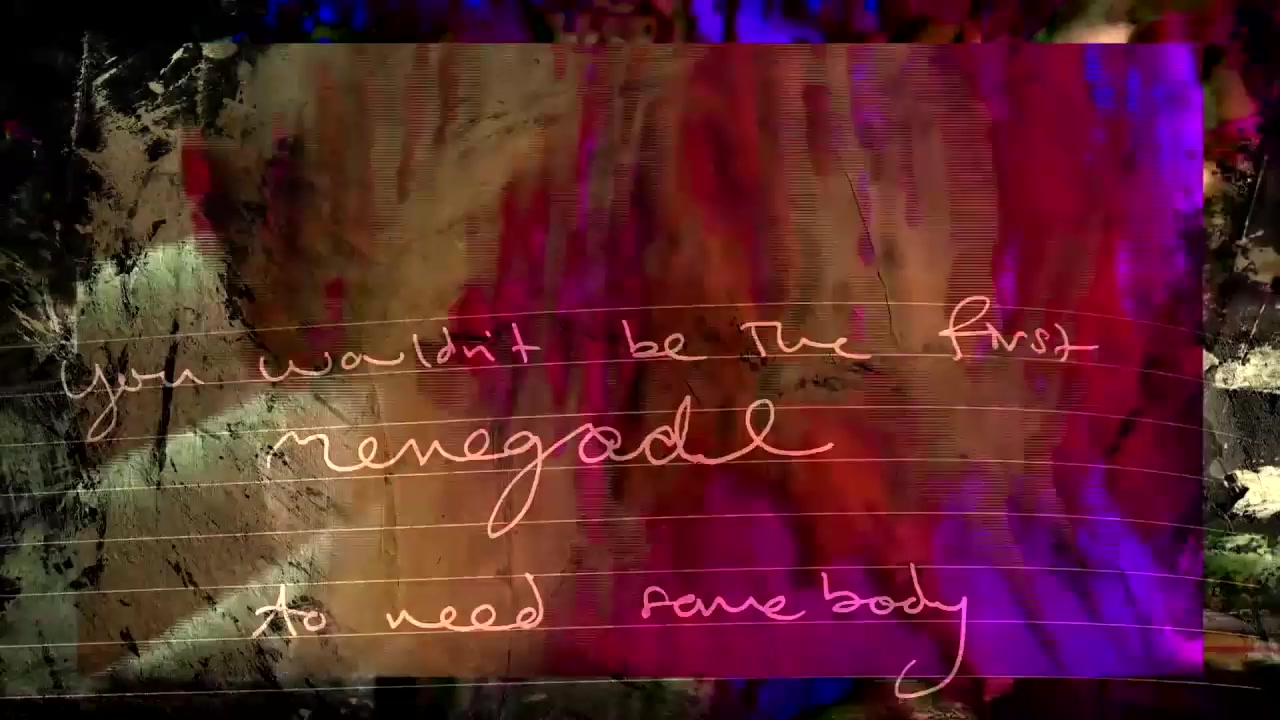 you wouldn't be the first
renegade
to need somebody